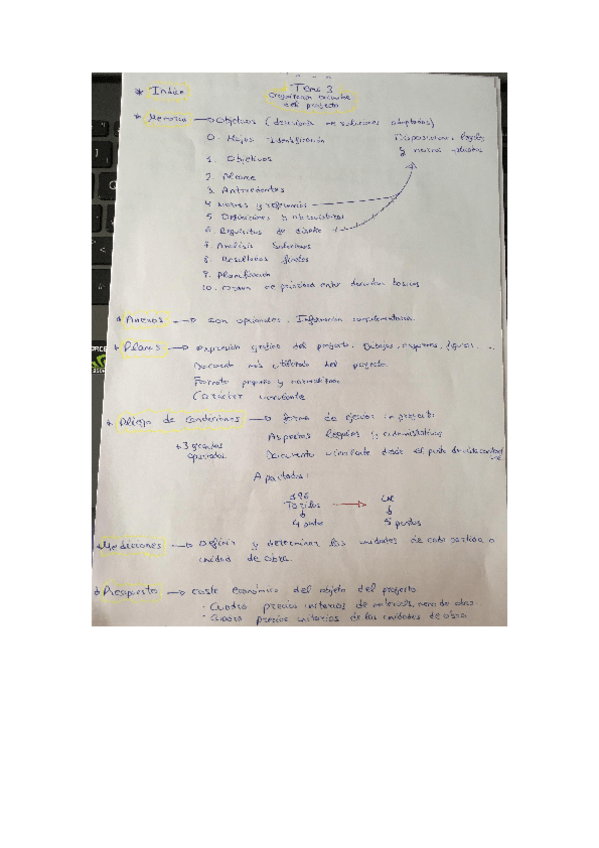 * Indice
Tema 3
del proyecto
* Memoria → Objetivos ( de soluciones adoptadas)
0. Hojas Identificación
Disposiciones legales
y normas
1. Objetivos
2. Alcance
3. Antecedentes
4 Normas y referencias
5 Definiciones y abreviaturas
6. Requisitos de diseño
7. Análisis Soluciones
8. Resultados finales
9. Planificación
10. Orden de prioridad entre basicos
* Anexos → son opcionales. Información complementaria.
* Planos → expresión grafica del proyecto. Dibujos, esquemas, figuras...
Documento más utilizado del proyecto.
Formato y normalizado
Caracter vinculante
* Pliego de Condiciones → forma de ejecutar proyecto
Aspectos legales y administrativos
Documento vinculante desde el punto de vista
* 3 grandes
apartados
Apartados:
4 puntos
5 puntos
* Mediciones → Definir y determinar las unidades de cada partida o
unidad de obra.
* Presupuesto → coste económico del objeto del proyecto
· Cuadro precios unitarios de materiales, mano de obra
· Cuadro precios unitarios de las unidades de obra